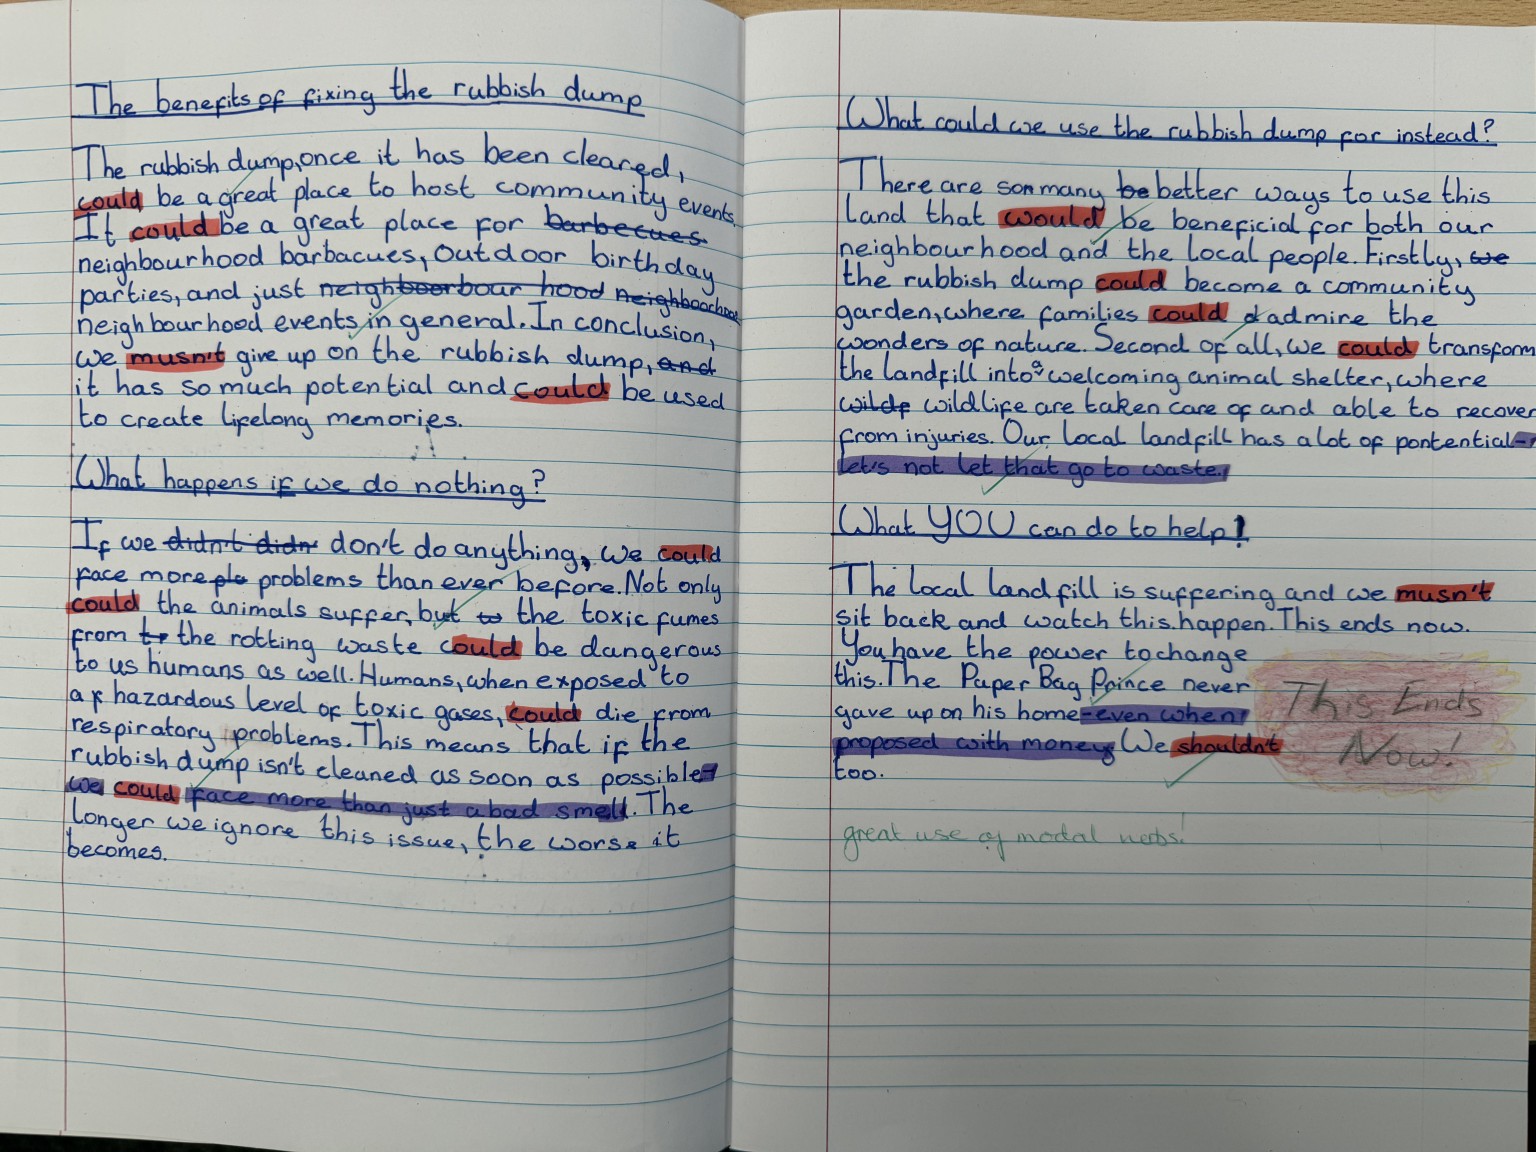 The benefits of fixing the rubbish dump
The rubbish dump, once it has been cleared,
could be a great place to host community events.
It could be a great place for barbecues
neighbourhood barbacues, outdoor birthday
parties, and just neighboorbour hood neighboorhood
neighbourhood events in general. In conclusion,
we musn't give up on the rubbish dump, and
it has so much potential and could be used
to create lifelong memories.
What happens if we do nothing?
If we didn't didn' don't do anything, we could
face more plo problems than ever before. Not only
could the animals suffer, but to the toxic fumes
from to the rotting waste could be dangerous
to us humans as well. Humans, when exposed to
a hazardous level of toxic gases, could die from
respiratory problems. This means that if the
rubbish dump isn't cleaned as soon as possible-
we could face more than just a bad smell. The
longer we ignore this issue, the worse it
becomes.
What could we use the rubbish dump for instead?
There are so many be better ways to use this
land that would be beneficial for both our
neighbourhood and the local people. Firstly, we
the rubbish dump could become a community
garden, where families could admire the
wonders of nature. Second of all, we could transform
the landfill into a welcoming animal shelter, where
wildf wildlife are taken care of and able to recover
from injuries. Our local landfill has a lot of pontential-
let's not let that go to waste.
What YOU can do to help!
The local landfill is suffering and we musn't
sit back and watch this happen. This ends now.
You have the power to change
this. The Paper Bag Prince never
gave up on his home-even when
proposed with money. We shouldn't
too.
This Ends
Now!
great use of modal verbs!